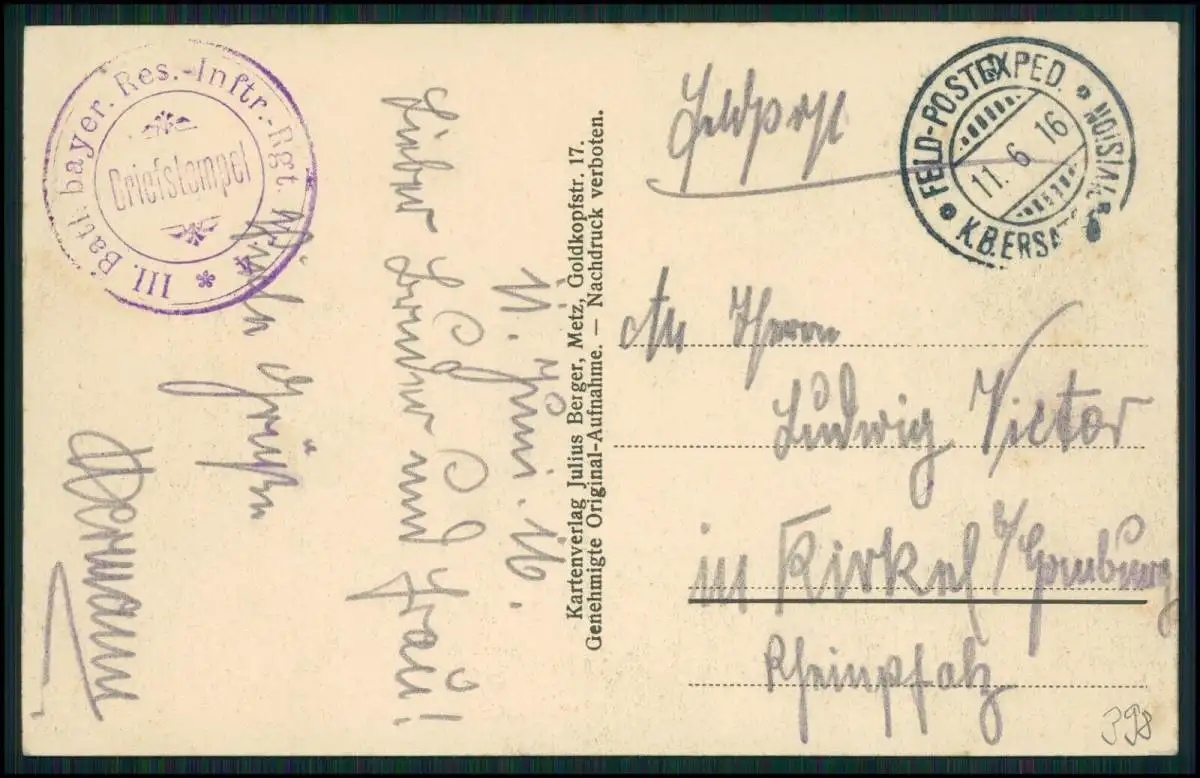 III. Batl. bayer. Res.-Inftr.-Rgt. 4
Briefstempel
FELD-POSTEXPED.
K.B.ERSATZ DIVISION
11. 6 16
Feldpost
11. Juni. 16.
Lieber Bruder und Frau!
Viele Grüße
Hermann
Kartenverlag Julius Berger, Metz, Goldkopfstr. 17.
Genehmigte Original-Aufnahme. — Nachdruck verboten.
An Herrn
Ludwig Victor
in Kirkel b/Homburg
Rheinpfalz
398